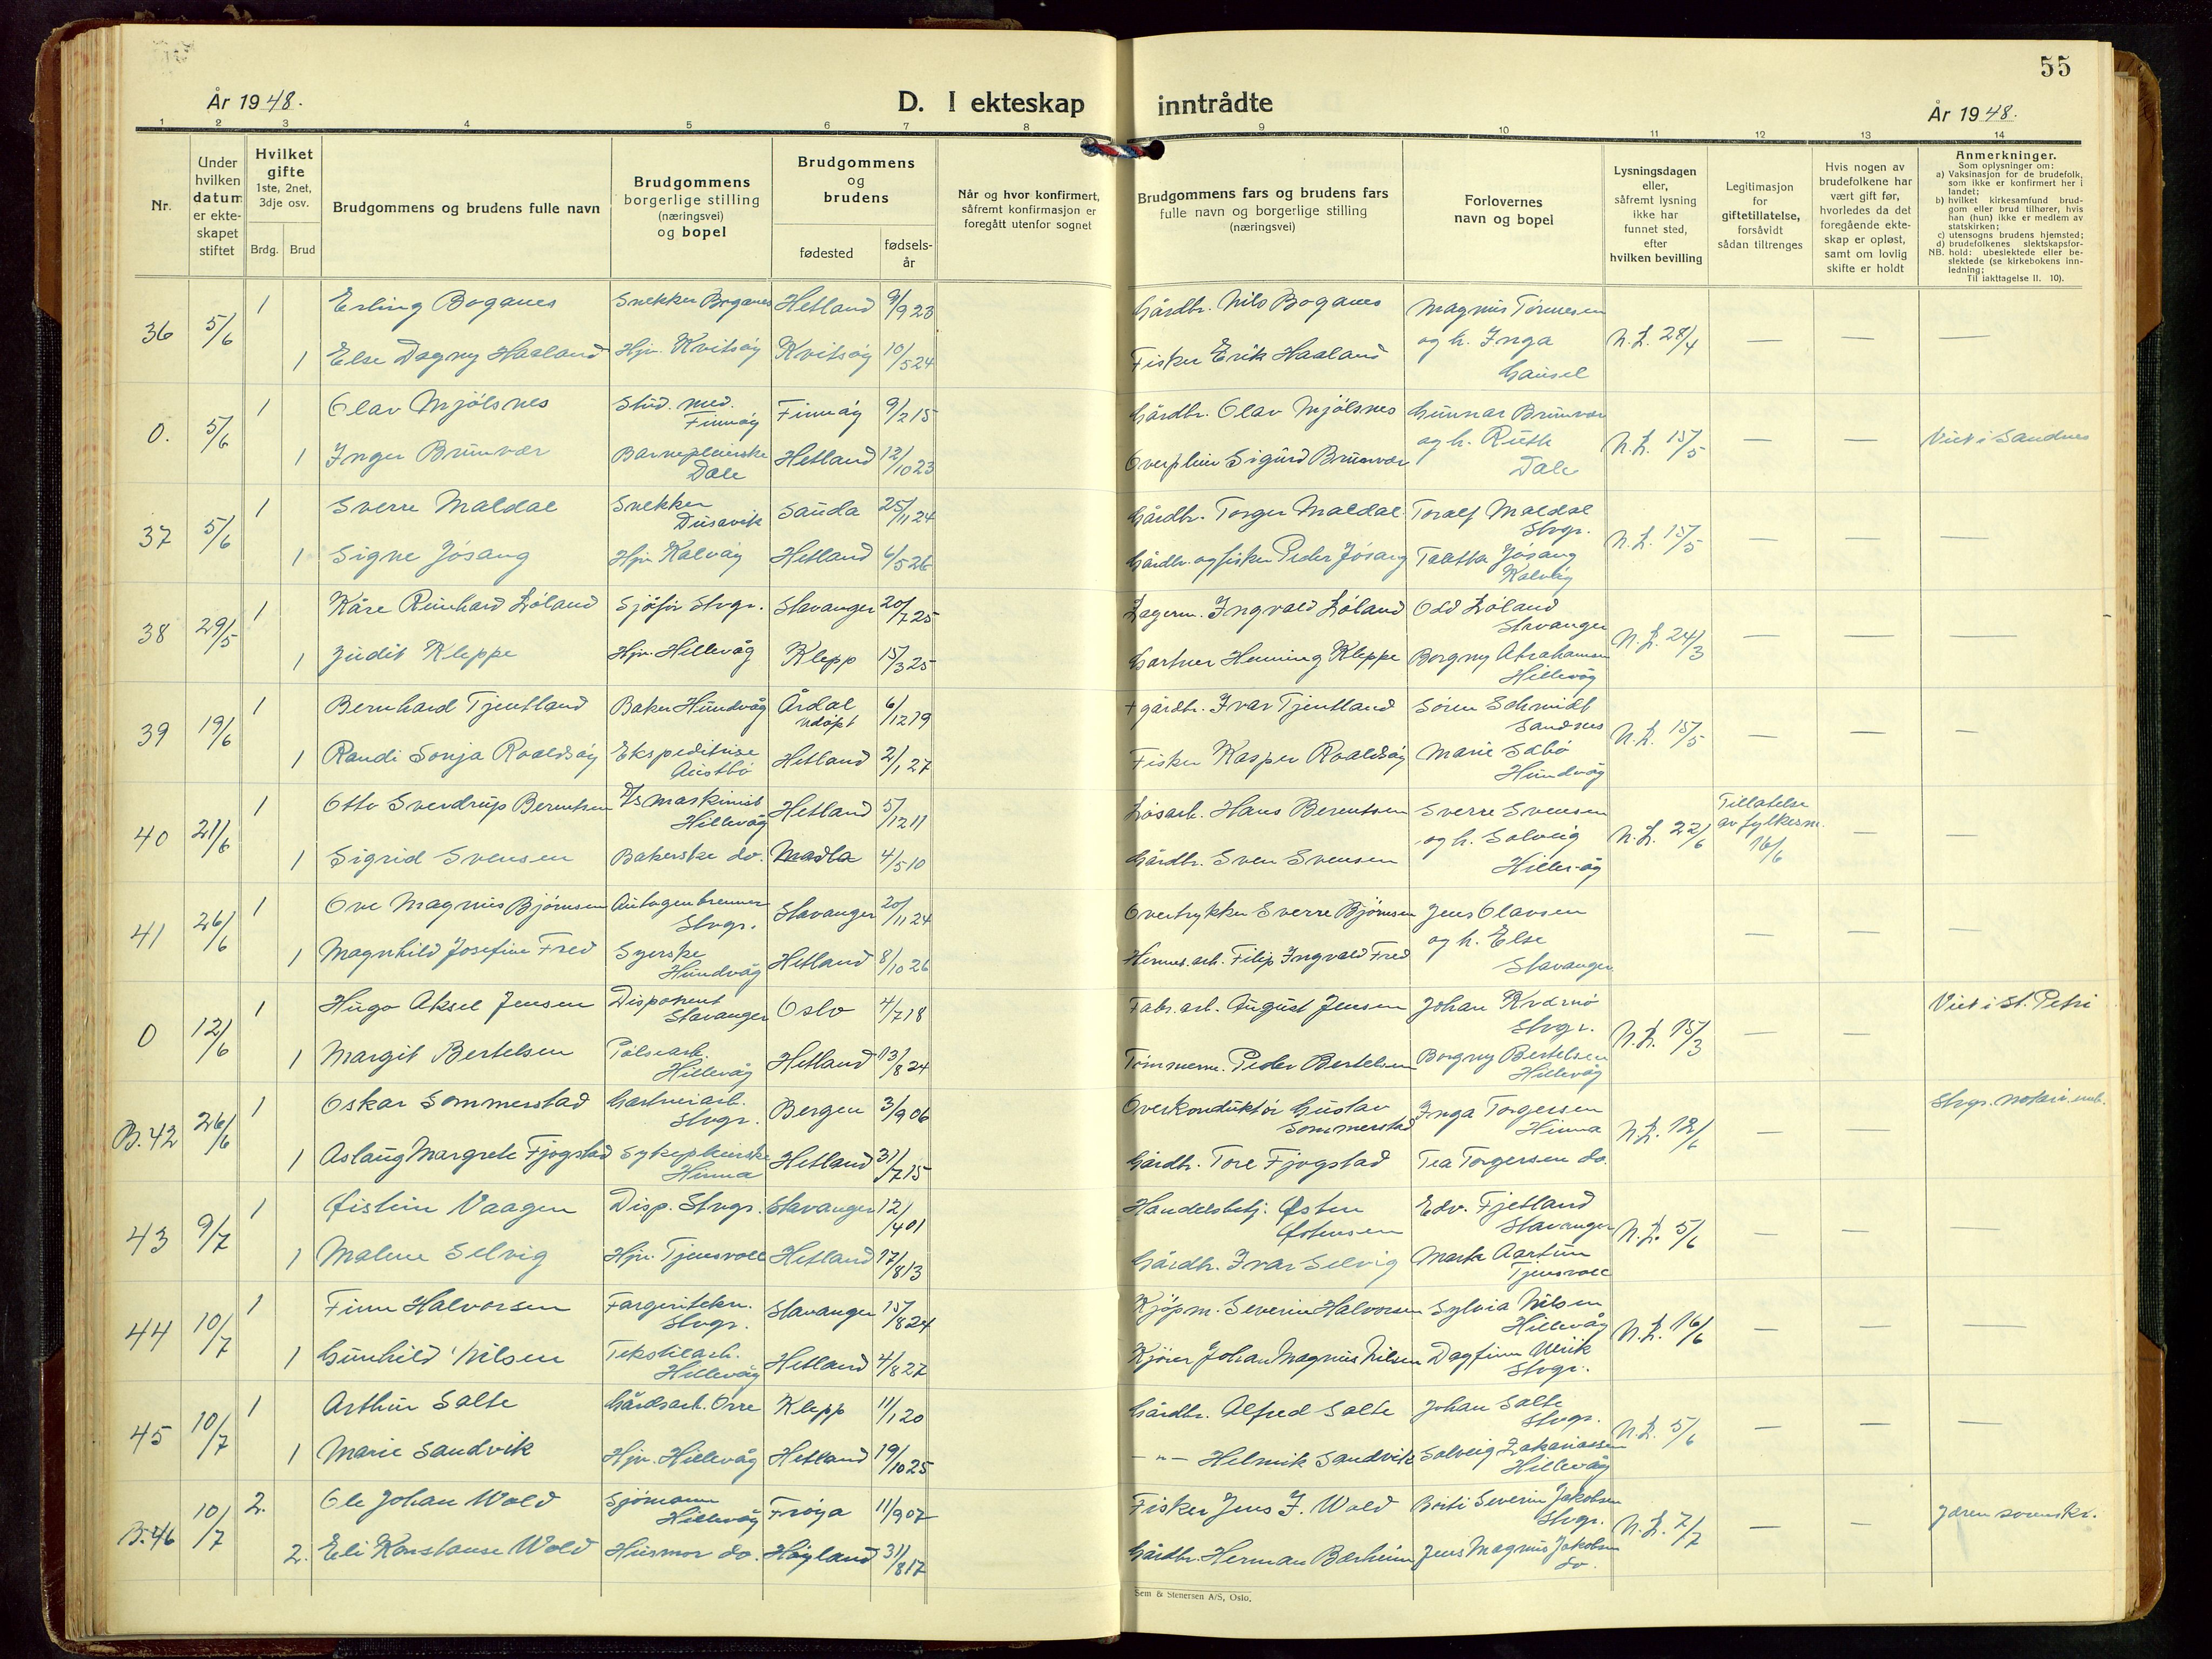 55
År 1948.
D. I ekteskap inntrådte
År 1948.
1 2 3 4 5 6 7 8 9 10 11 12 13 14
Nr.
Under hvilken datum er ekteskapet stiftet
Hvilket gifte 1ste, 2net, 3dje osv.
Brdg. Brud
Brudgommens og brudens fulle navn
Brudgommens borgerlige stilling (næringsvei) og bopel
Brudgommens og brudens
fødested
fødselsår
Når og hvor konfirmert, såfremt konfirmasjon er foregått utenfor sognet
Brudgommens fars og brudens fars fulle navn og borgerlige stilling (næringsvei)
Forlovernes navn og bopel
Lysningsdagen eller, såfremt lysning ikke har funnet sted, efter hvilken bevilling
Legitimasjon for giftetillatelse, forsåvidt sådan tiltrenges
Hvis nogen av brudefolkene har vært gift før, hvorledes da det foregående ekteskap er opløst, samt om lovlig skifte er holdt
Anmerkninger.
Som oplysninger om:
a) Vaksinasjon for de brudefolk, som ikke er konfirmert her i landet;
b) hvilket kirkesamfund brudgom eller brud tilhører, hvis han (hun) ikke er medlem av statskirken;
c) utensogns brudens hjemsted;
d) brudefolkenes slektskapsforhold: ubeslektede eller beslektede (se kirkebokens innledning;
NB.
Til iakttagelse II. 10).
36 5/6 1 Erling Boganes Snekker Boganes Hetland 9/9 23 Gårdbr. Nils Boganes Magnus Tönnesen
og h. Inga N.L. 28/4 — — —
1 Else Dagny Haaland Hjv. Kvitsöy Kvitsöy 10/5 24 Fisker Erik Haaland Gausel
0. 5/6 1 Olav Mjölsnes Stud. med. Finnöy Finnöy 9/2 15 Gårdbr. Olav Mjölsnes Gunnar Brunvær
og h. Ruth N.L. 15/5 — — Viet i Sandnes
1 Inger Brunvær Barnepleierske Dale Hetland 12/10 23 Overpleier Sigurd Brunvær Dale
37 5/6 1 Sverre Maldal Snekker Dusavik Sauda 25/11 24 Gårdbr. Torger Maldal Toralf Maldal Stvgr.
N.L. 15/5 — — —
1 Signe Jösang Hjv. Kalvöy Hetland 6/5 26 Gårdbr. og fisker Peder Jösang Jösang Kalvöy
38 29/5 1 Kåre Reinhard Löland Sjåför Stvgr. Stavanger 20/7 25 Lagerm. Ingvald Löland Odd Löland Stavanger
N.L. 24/3 — — —
1 Judit Kleppe Hjv. Hillevåg Klepp 15/3 25 Gartner Henning Kleppe Borgny Abrahamsen Hillevåg
39 19/6 1 Bernhard Tjentland Baker Hundvåg Årdal udöpt 6/12 19 + gårdbr. Ivar Tjentland Sören Schmidt Sandnes
N.L. 15/5 — — —
1 Randi Sonja Roaldsöy Ekspeditrise Austbö Hetland 2/1 27 Fisker Kasper Roaldsöy Marie Sæbö Hundvåg
40 21/6 1 Otto Sverdrup Berentsen D/S maskinist Hillevåg Hetland 5/12 11 Lösarb. Hans Berentsen Sverre Svensen
og h. Solveig N.L. 22/6 Tillatelse av fylkesm. 16/6 — —
1 Sigrid Svensen Bakerske do. Madla 4/5 10 Gårdbr. Sven Svensen Hillevåg
41 26/6 1 Ove Magnus Björnsen Autogenbrenner Stvgr. Stavanger 20/11 24 Overtrykker Sverre Björnsen Jens Olavsen
og h. Else — — —
1 Magnhild Josefine Fred Syerske Hundvåg Hetland 8/10 26 Hermet.arb. Filip Ingvald Fred Stavanger
0 12/6 1 Hugo Aksel Jensen Disponent Stavanger Oslo 4/7 18 Fabr. arb. August Jensen Johan Stvgr. Viet i St. Petri
N.L. 15/3 — —
1 Margit Bertelsen Pölsearb. Hillevåg Hetland 13/8 24 Tömmerm. Peder Bertelsen Borgny Bertelsen Hillevåg
B. 42 26/6 1 Oskar Sommerstad Gartneriarb. Stvgr. Bergen 3/9 06 Overkonduktör Gustav Sommerstad Inga Torgersen Hinna Stvgr. notari. emb.
N.L. 12/6 — —
1 Aslaug Margrete Fjogstad Sykepleierske Hinna Hetland 31/7 15 Gårdbr. Tore Fjogstad Tea Torgersen do.
43 9/7 1 Öistein Vaagen Disp. Stvgr. Stavanger 12/4 01 Handelsbetj. Østen Østensen Edv. Fjetland Stavanger
N.L. 5/6 — — —
1 Malene Selvig Hjv. Tjensvoll Hetland 17/8 13 Gårdbr. Ivar Selvig Marta Aartun Tjensvoll
44 10/7 1 Finn Halvorsen Fargeritekn. Stvgr. Stavanger 15/8 24 Kjöpm. Severin Halvorsen Sylvia Nilsen Hillevåg
N.L. 16/6 — — —
1 Gunhild Nilsen Tekstilarb. Hillevåg Hetland 4/8 27 Kjörer Johan Magnus Nilsen Dagfinn Ulrik Stvgr.
45 10/7 1 Arthur Salte Gårdsarb. Orre Klepp 11/1 20 Gårdbr. Alfred Salte Johan Salte Stvgr.
N.L. 5/6 — — —
1 Marie Sandvik Hjv. Hillevåg Hetland 19/10 25 — " — Helmik Sandvik Solveig Zakariassen Hillevåg
B. 46 10/7 2. Ole Johan Wold Sjömann Hillevåg Fröya 11/9 07 Fisker Jens J. Wold Severin Jakobsen Stvgr. Jæren sorenskr.
N.L. 7/7 — —
2. Eli Konstanse Wold Husmor do. Höyland 31/8 17 Gårdbr. Herman Bærheim Jens Magnus Jakobsen do.
Sem & Stenersen A/S, Oslo.